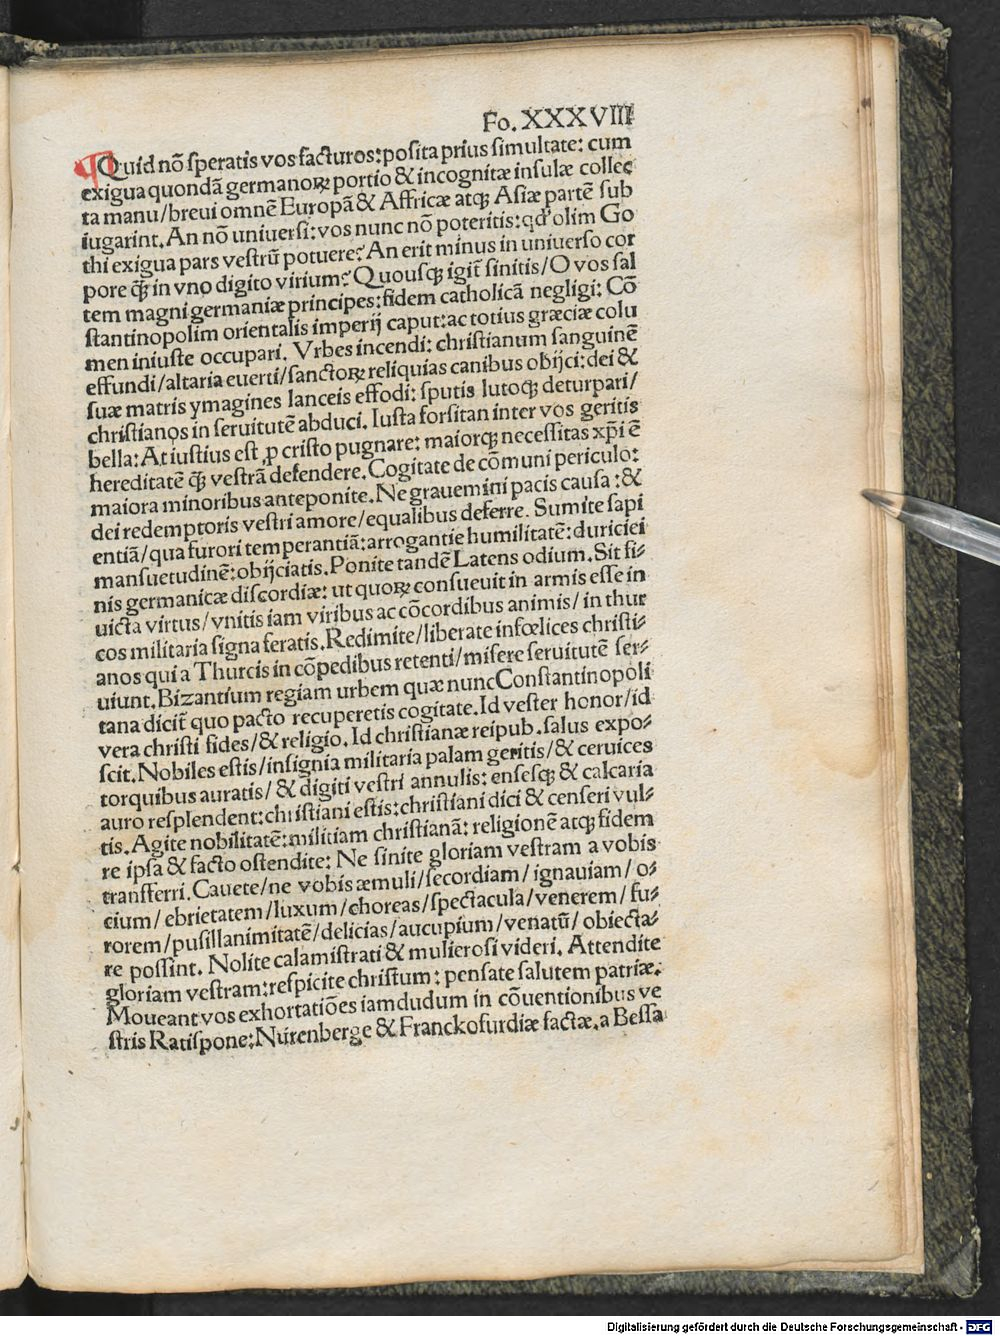 Fo. XXXVIII
¶Quid nō speratis vos facturos: posita prius simultate: cum
exigua quondā germanoꝝ portio & incognitæ insulæ collec
ta manu/breui omnē Europā & Affricæ atqꝫ Asiæ partē sub
iugarint. An nō uniuersi: vos nunc nō poteritis: qd' olim Go
thi exigua pars vestrū potuere? An erit minus in uniuerso cor
pore qꝫ̄ in vno digito virium? Quousqꝫ igit̄ sinitis/O vos sal
tem magni germaniæ principes: fidem catholicā negligi: Cō
stantinopolim orientalis imperij caput: ac totius græciæ colu
men iniuste occupari. Vrbes incendi: christianum sanguinē
effundi/altaria euerti/sanctoꝝ reliquias canibus obijci: dei &
suæ matris ymagines lanceis effodi: sputis lutoqꝫ deturpari/
christianos in seruitutē abduci. Iusta forsitan inter vos geritis
bella: At iustius est ꝓ cristo pugnare: maiorqꝫ necessitas xp̄i ē
hereditatē qꝫ̄ vestrā defendere. Cogitate de cōmuni periculo:
maiora minoribus anteponite. Ne grauemini pacis causa: &
dei redemptoris vestri amore/equalibus deferre. Sumite sapi
entiā/qua furori temperantiā: arrogantie humilitatē: duriciei
mansuetudinē: obijciatis. Ponite tandē Latens odium. Sit fi⸗
nis germanicæ discordiæ: ut quoꝝ consueuit in armis esse in
uicta virtus/vnitis iam viribus ac cōcordibus animis/in thur
cos militaria signa feratis. Redimite/liberate infœlices christi⸗
anos qui a Thurcis in cōpedibus retenti/misere seruitutē ser⸗
uiunt. Bizantium regiam urbem quæ nunc Constantinopoli
tana dicit̄ quo pacto recuperetis cogitate. Id vester honor/id
vera christi fides/& religio. Id christianæ reipub. salus expo⸗
scit. Nobiles estis/insignia militaria palam geritis/& ceruices
torquibus auratis/& digiti vestri annulis: ensesqꝫ & calcaria
auro resplendent: christiani estis: christiani dici & censeri vul⸗
tis. Agite nobilitatē: militiam christianā: religionē atqꝫ fidem
re ipsa & facto ostendite: Ne sinite gloriam vestram a vobis
transferri. Cauete/ne vobis æmuli/secordiam/ignauiam/o⸗
cium/ebrietatem/luxum/choreas/spectacula/venerem/fu⸗
rorem/pusillanimitatē/delicias/aucupium/venatū/obiecta⸗
re possint. Nolite calamistrati & mulierosi videri. Attendite
gloriam vestram: respicite christum: pensate salutem patriæ.
Moueant vos exhortatiōes iamdudum in cōuentionibus ve
stris Ratispone: Nurenberge & Franckofurdiæ factæ. a Bessa
Digitalisierung gefördert durch die Deutsche Forschungsgemeinschaft - DFG